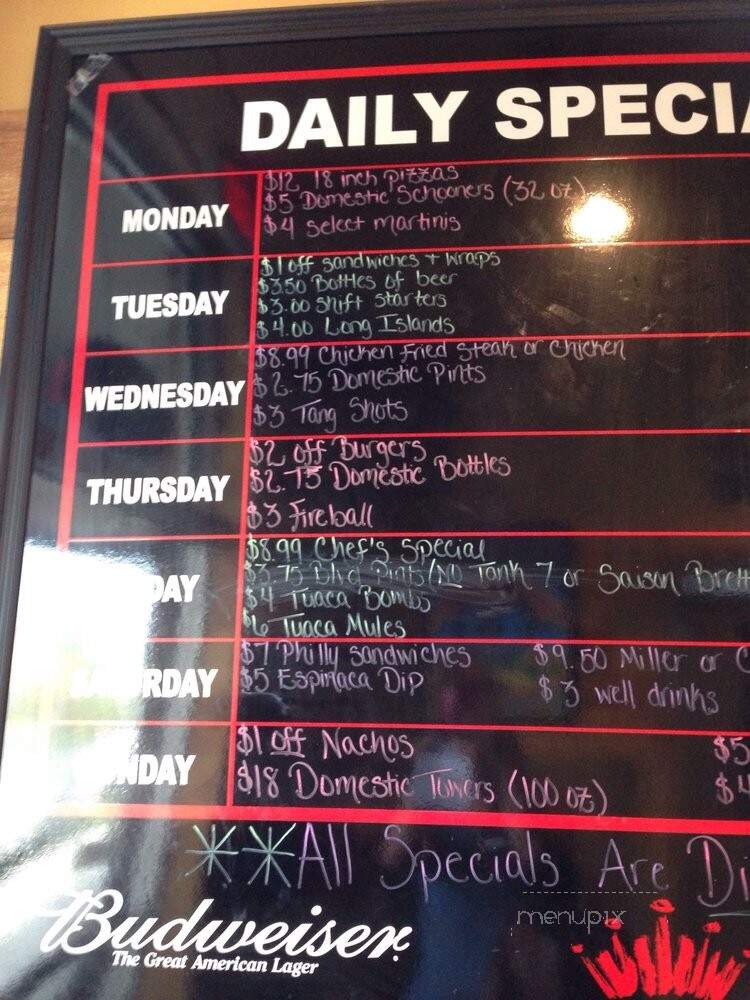 DAILY SPECI
MONDAY
$12 18 inch pizzas
$5 Domestic Schooners (32 oz)
$4 select martinis
TUESDAY
$1 off sandwiches + wraps
$3.50 Bottles of beer
$3.00 Shift Starters
$4.00 Long Islands
WEDNESDAY
$8.99 Chicken Fried Steak or Chicken
$2.75 Domestic Pints
$3 Tang Shots
THURSDAY
$2 off Burgers
$2.75 Domestic Bottles
$3 Fireball
DAY
$8.99 Chef's Special
$3.75 Blvd Pints/NO Tank 7 or Saison Brett
$4 Tuaca Bombs
$6 Tuaca Mules
RDAY
$7 Philly sandwiches $9.50 Miller or C
$5 Espinaca Dip $3 well drinks
NDAY
$1 off Nachos $5
$18 Domestic Towers (100 oz) $4
**All Specials Are Di
menupix
Budweiser
The Great American Lager